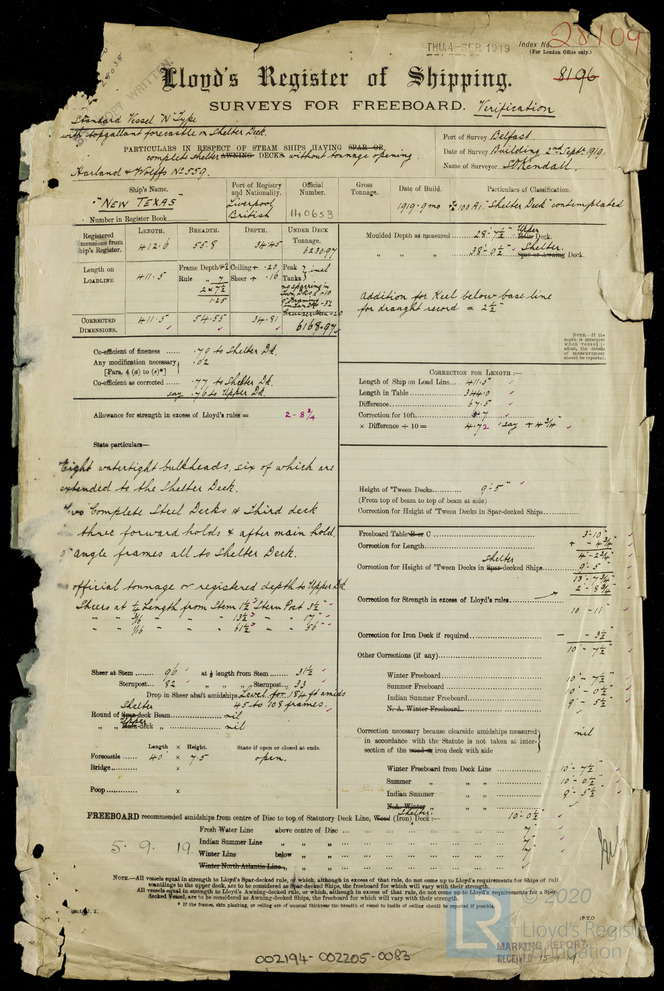 THU. 4-SEP 1919
Index No. 28109
(For London Office only.)
8196
Lloyd's Register of Shipping.
SURVEYS FOR FREEBOARD. Verification
Standard Vessel "N" Type
with topgallant forecastle on Shelter Deck.
PARTICULARS IN RESPECT OF STEAM SHIPS HAVING SPAR OR
complete shelter AWNING DECKS without tonnage opening.
Harland & Wolff's No 559.
Port of Survey Belfast.
Date of Survey Building 2nd Septr. 1919.
Name of Surveyor
Ship's Name.
"NEW TEXAS"
Number in Register Book
Port of Registry and Nationality.
Liverpool
British
Official Number.
140653
Gross Tonnage.
Date of Build.
1919-9mo
Particulars of Classification.
100 A1 "Shelter Deck" contemplated
LENGTH. BREADTH. DEPTH. UNDER DECK TONNAGE.
Registered dimensions from Ship's Register.
412.6 55.8 34.45 6230.97
Length on LOADLINE 411.5
Frame Depth
Rule 7
1.25
Ceiling + .20
Sheer + .16
Peak Tanks } incl
CORRECTED DIMENSIONS. 411.5 54.55 34.81 6168.97
Moulded Depth as measured 28'-7½" Upper Deck.
" " " 38'-0½" Shelter Spar or Awning Deck.
Addition for Keel below base line
for draught record = 2½"
NOTE.—If the depth is entered when vessel is afloat, the details of measurement should be reported.
Co-efficient of fineness .79 to Shelter Dk.
Any modification necessary } .02
[Para. 4 (a) to (e)*]
Co-efficient as corrected .77 to Shelter Dk.
say .76 to Upper Dk.
Allowance for strength in excess of Lloyd's rules = 2-8¾
State particulars
CORRECTION FOR LENGTH:—
Length of Ship on Load Line 411.5
Length in Table 344.0
Difference 67.5
Correction for 10ft. .7
× Difference ÷ 10 = 4.72 "say + 4¾"
Eight watertight bulkheads, six of which are
extended to the Shelter Deck.
Two Complete Steel Decks & Third deck
in three forward holds & after main hold,
angle frames all to Shelter Deck.
No official tonnage or registered depth to Upper Dk
Height of 'Tween Decks 9'-5"
(From top of beam to top of beam at side)
Correction for Height of 'Tween Decks in Spar-decked Ships
Freeboard Table B or C 3-10
Correction for Length + - 4¾
4'-2¾"
Correction for Height of 'Tween Decks in Shelter Spar-decked Ships 9-5
13-7¾
2-8¾
Correction for Strength in excess of Lloyd's rules
10-11
Correction for Iron Deck if required - - 3½
10-7½
Other Corrections (if any)
Sheers at ¼ Length from Stem 31½" Stern Post 3½"
" " " 13½" " 17"
" " 1/16 " " 61½" " 56"
Sheer at Stem 96 at ⅛ length from Stem 31½
Sternpost 82 " " Sternpost 33
Drop in Sheer abaft amidships Level for 184 ft amids
45 to 108 frames.
Round of Shelter Spar-deck Beam nil
" Upper Main-deck " nil
Length × Height. State if open or closed at ends.
Forecastle 40 × 7.5 open.
Bridge ×
Poop ×
Winter Freeboard 10-7½
Summer Freeboard 10-0½
Indian Summer Freeboard 9-5½
N. A. Winter Freeboard
Correction necessary because clearside amidships measured in accordance with the Statute is not taken at intersection of the wood or iron deck with side nil
Winter Freeboard from Deck Line 10-7½
Summer " " 10-0½
Indian Summer " " 9-5½
N.A. Winter " "
FREEBOARD recommended amidships from centre of Disc to top of Statutory Deck Line, Wood (Iron) Shelter Deck:— 10-0½
5. 9. 19.
Fresh Water Line above centre of Disc
Indian Summer Line " "
Winter Line below " "
Winter North Atlantic Line " "
NOTE.—All vessels equal in strength to Lloyd's Spar-decked rule, or which, although in excess of that rule, do not come up to Lloyd's requirements for Ships of full scantlings to the upper deck, are to be considered as Spar-decked Ships, the freeboard for which will vary with their strength.
All vessels equal in strength to Lloyd's Awning-decked rule, or which, although in excess of that rule, do not come up to Lloyd's requirements for a Spar decked Vessel, are to be considered as Awning-decked Ships, the freeboard for which will vary with their strength.
* If the frames, skin planking, or ceiling are of unusual thickness the breadth of vessel to inside of ceiling should be reported if possible.
(P.T.O.
LR
© 2020
Lloyd's Register Foundation
MARKING REPORT
RECEIVED
002194-002205-0083